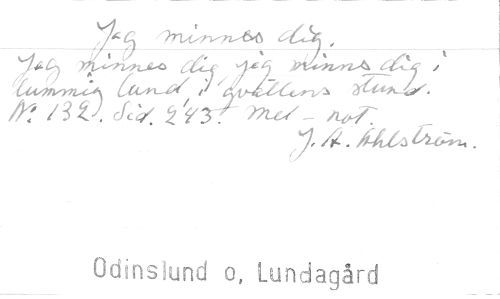 Jag minnes dig.
Jag minnes dig, jag minns dig i
lummig lund, i qvällens stund.
N: 132. Sid. 243. Mel - not.
J. A. Ahlström.
Odinslund o, Lundagård